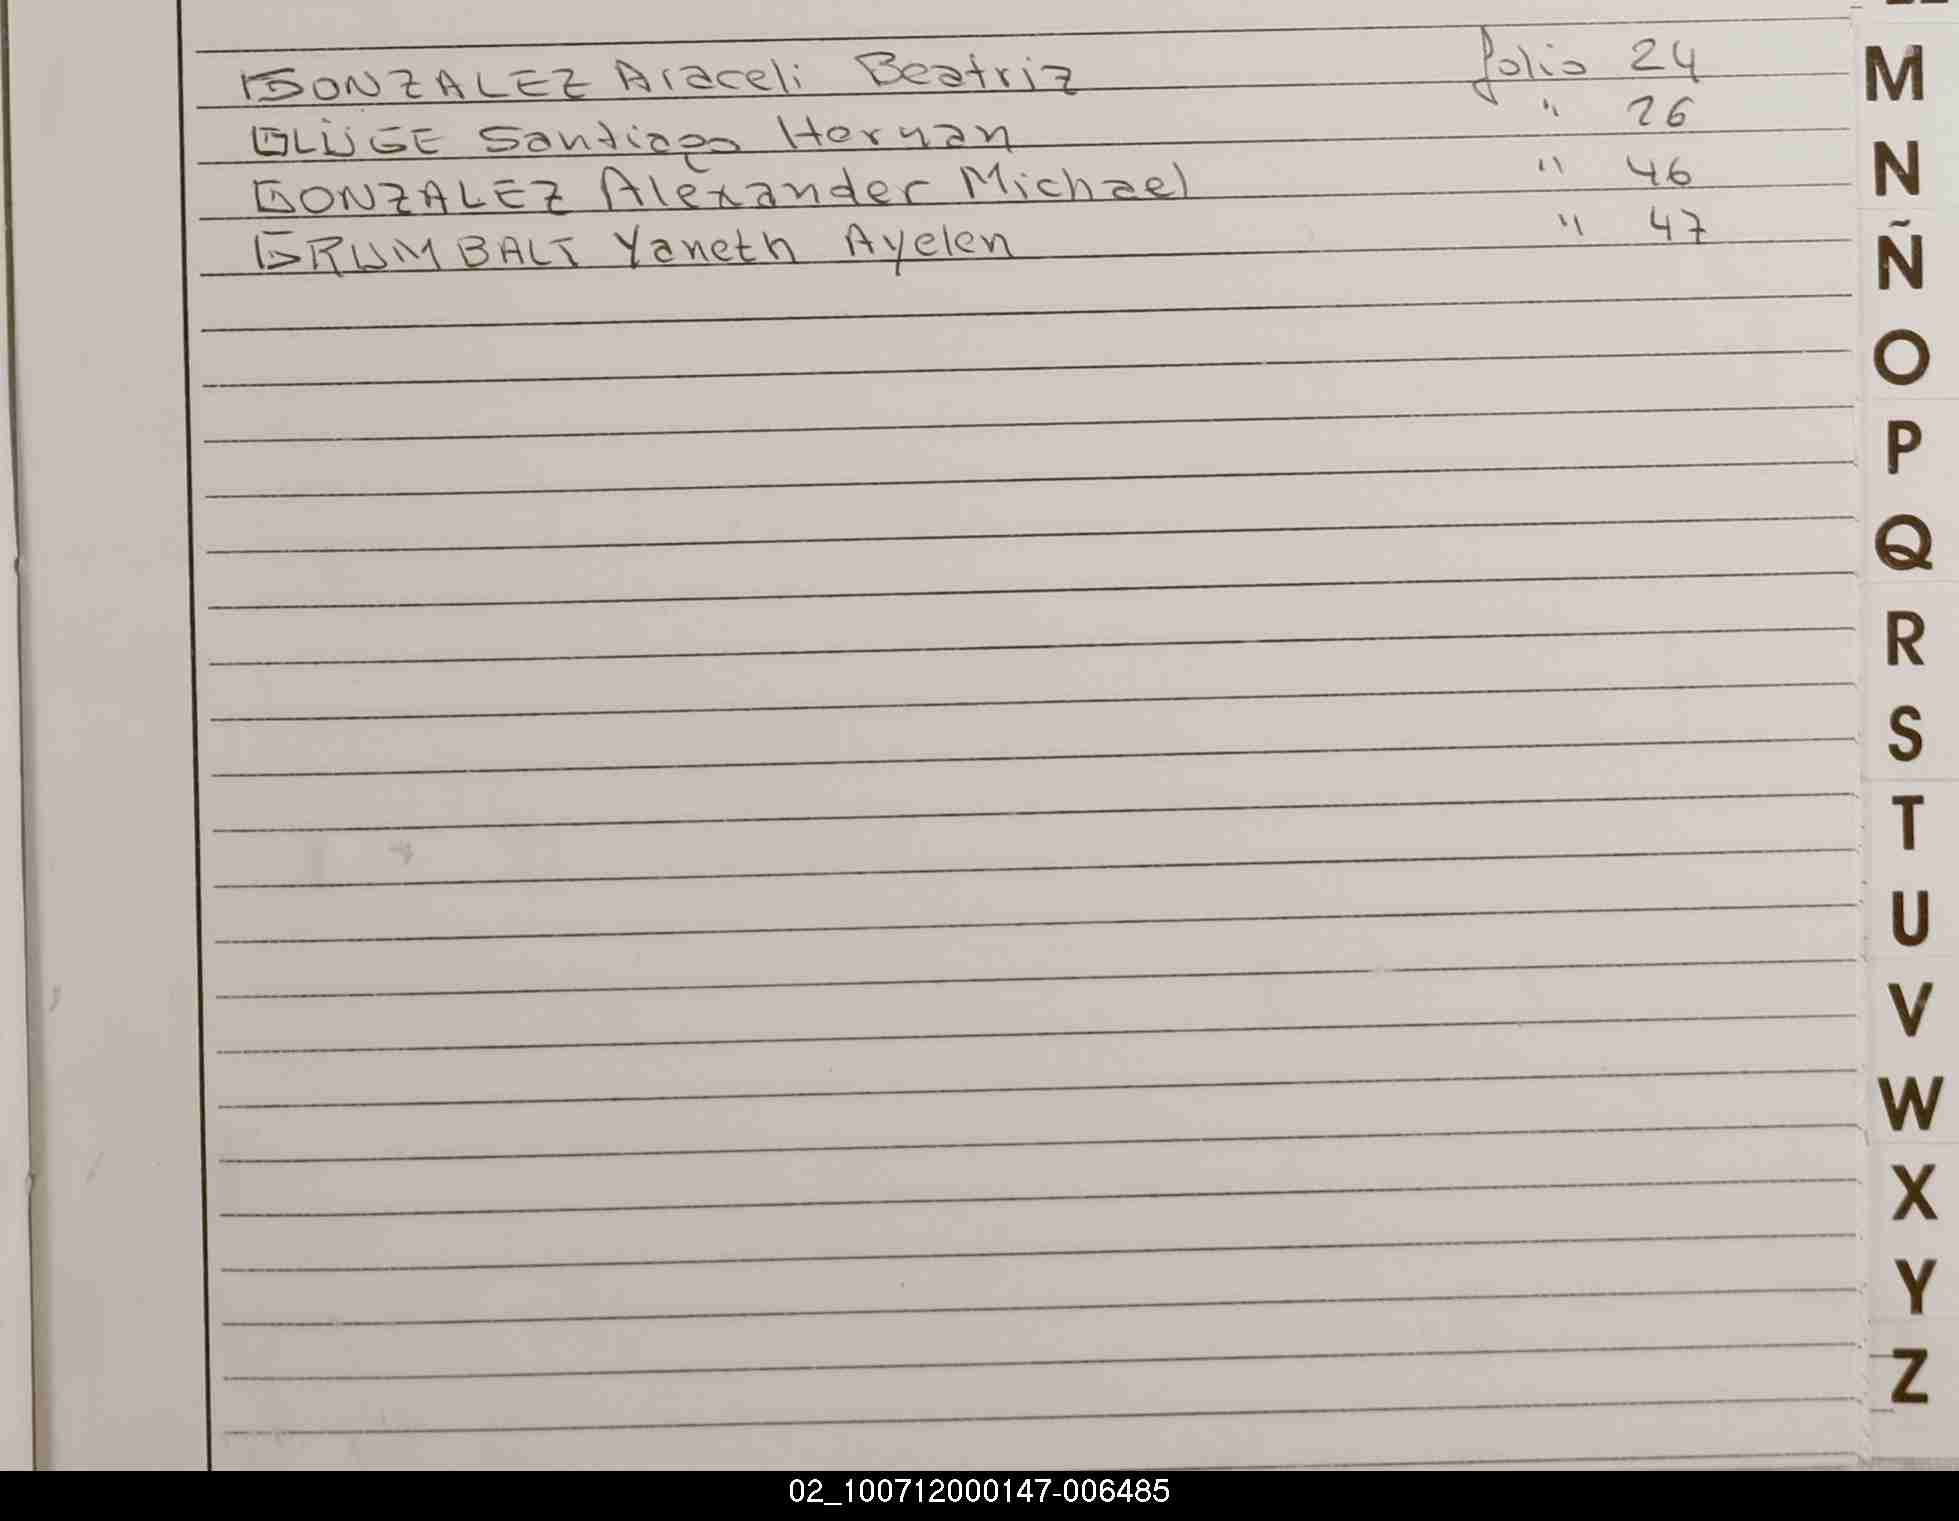 GONZALEZ Araceli Beatriz folio 24
GLÜGE Santiago Hernan " 26
GONZALEZ Alexander Michael " 46
GRUMBALT Yaneth Ayelen " 47
M
N
Ñ
O
P
Q
R
S
T
U
V
W
X
Y
Z
02_100712000147-006485